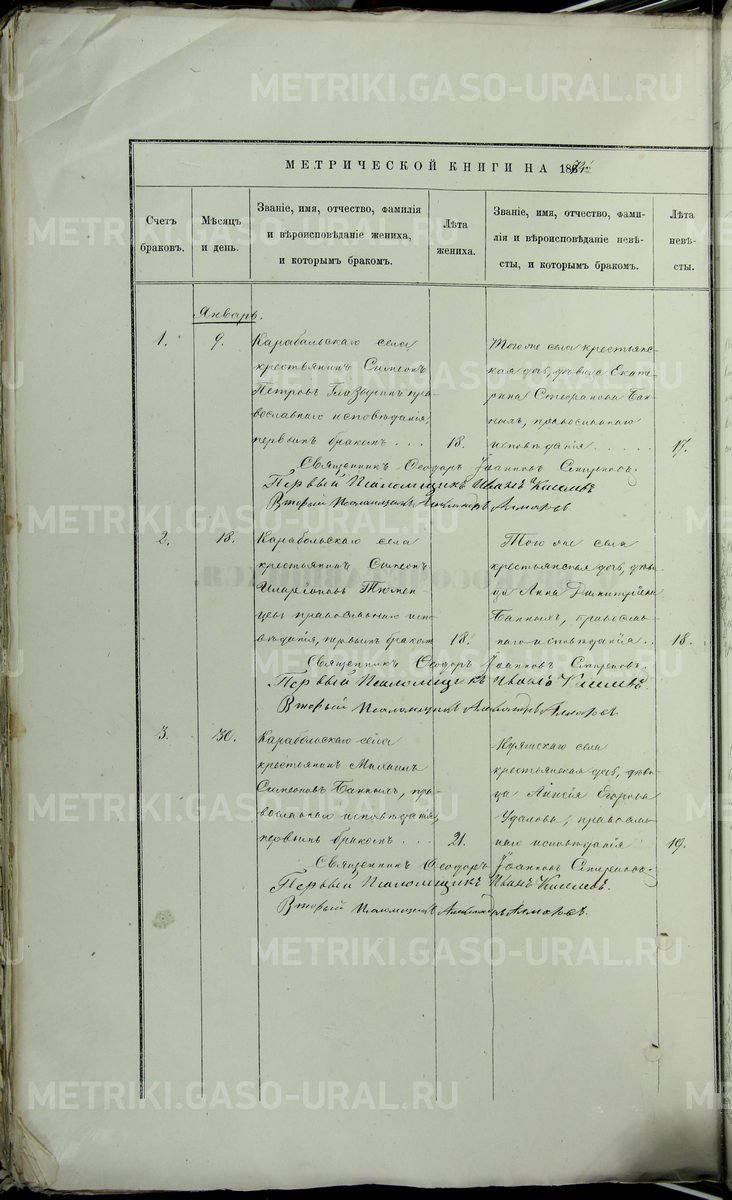 METRIKI.GASO-URAL.RU
МЕТРИЧЕСКОЙ КНИГИ НА 18
Счетъ браковъ.
Мѣсяцъ и день.
Званіе, имя, отчество, фамилія
и вѣроисповѣданіе жениха,
и которымъ бракомъ.
Лѣта жениха.
Званіе, имя, отчество, фами-
лія и вѣроисповѣданіе невѣ-
сты, и которымъ бракомъ.
Лѣта невѣ-
сты.
Январь.
1. 9.
Карабольскаго села
крестьянинъ Симеонъ
Петровъ пра-
вославнаго исповѣданія,
первымъ бракомъ . . . 18.
Того же села крестьянс-
кая дочь, дѣвица Екате-
рина Стефанова Бан-
ныхъ, православнаго
исповѣданія . . . . . 17.
Священникъ Ѳеодоръ Іоанновъ Спиренковъ.
Первый Псаломщикъ Иванъ Киселевъ
Второй Псаломщикъ Александръ
2. 18.
Карабольскаго села
крестьянинъ Симеонъ
Иларіоновъ Тюмен-
цевъ православнаго испо-
вѣданія, первымъ бракомъ 18.
Того же села
крестьянская дочь, дѣви-
ца Анна Димитріева
Банныхъ, православ-
наго исповѣданія . . 18.
Священникъ Ѳеодоръ Іоанновъ Спиренковъ.
Первый Псаломщикъ Иванъ Киселевъ.
Второй Псаломщикъ Александръ
3. 30.
Карабольскаго села
крестьянинъ Михаилъ
Симеоновъ Банныхъ, пра-
вославнаго исповѣданія,
первымъ бракомъ . . . 21.
Куяшскаго села
крестьянская дочь, дѣви-
ца Анисія Егорова
Удалова, православ-
наго исповѣданія 19.
Священникъ Ѳеодоръ Іоанновъ Спиренковъ.
Первый Псаломщикъ Иванъ Киселевъ.
Второй Псаломщикъ Александръ